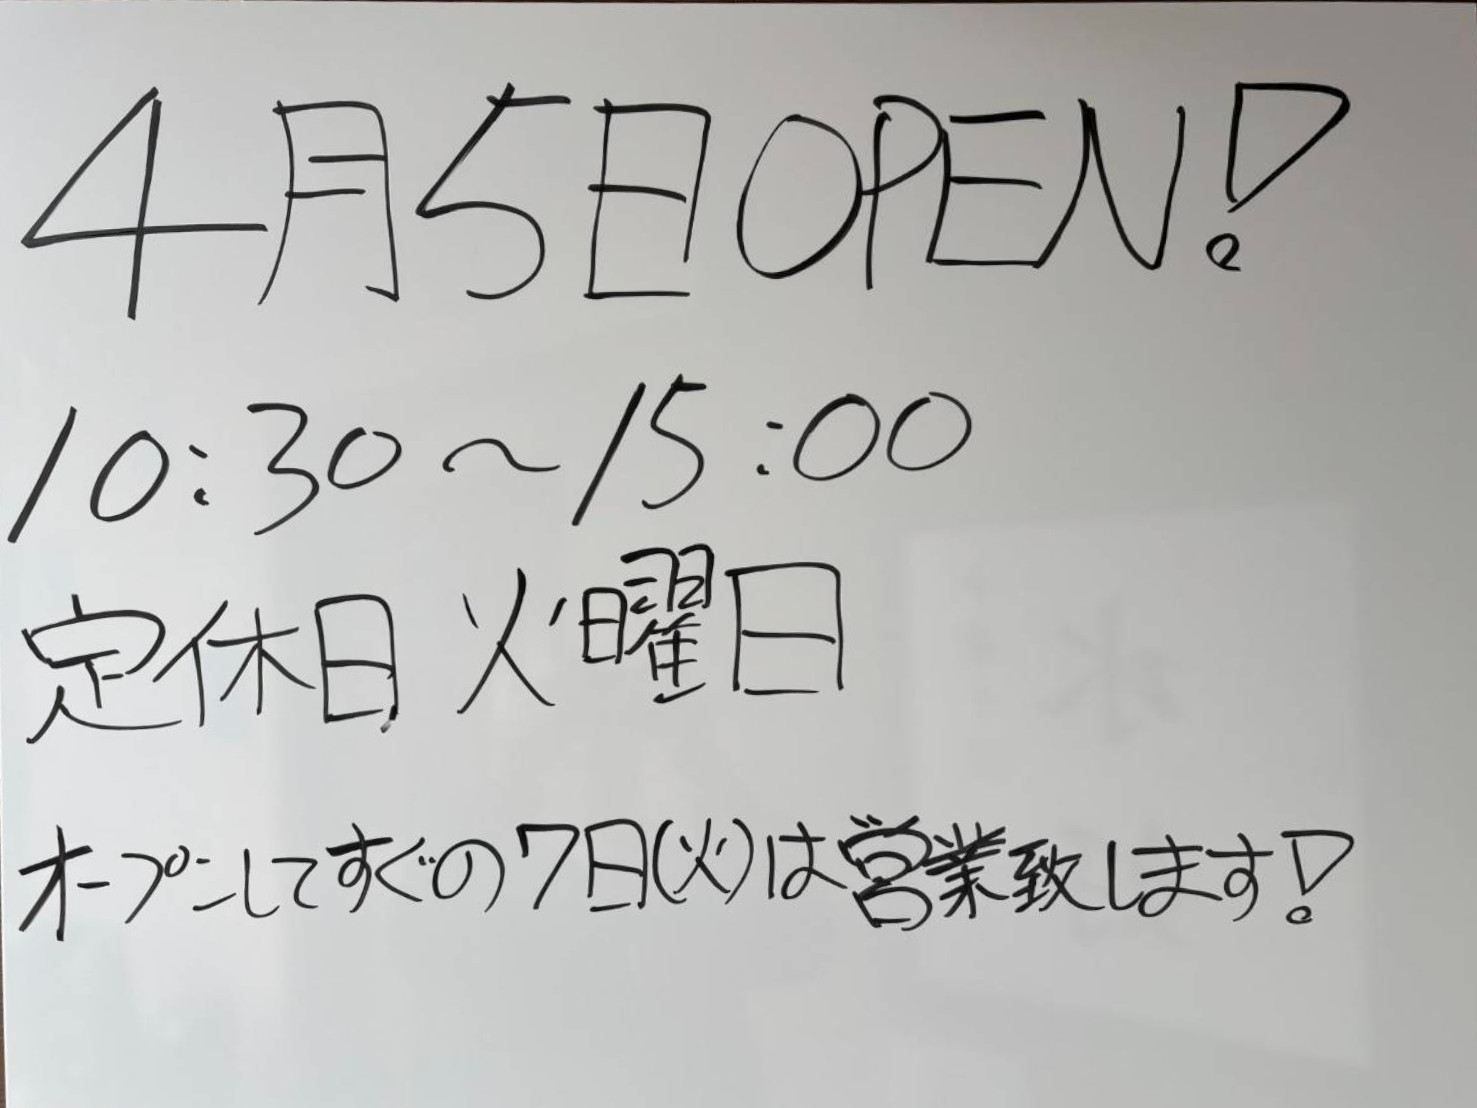 4月5日OPEN!
10:30〜15:00
定休日 火曜日
オープンしてすぐの7日(火)は営業致します!